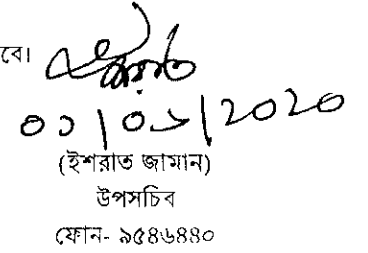 বে।
০১ | ০১ | 2020
(ইশরাত জামান)
উপসচিব
ফোন- ৯৫৪৬৪৪০